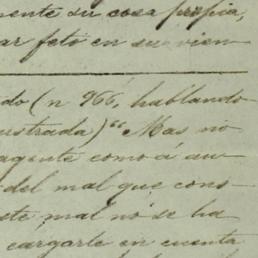 mente su cosa propia,
ar feto en su vien-
do (n 966, hablando
ustrada) "Mas no
agente como á au-
del mal que cons-
ste mal no se ha
cargarle en cuenta